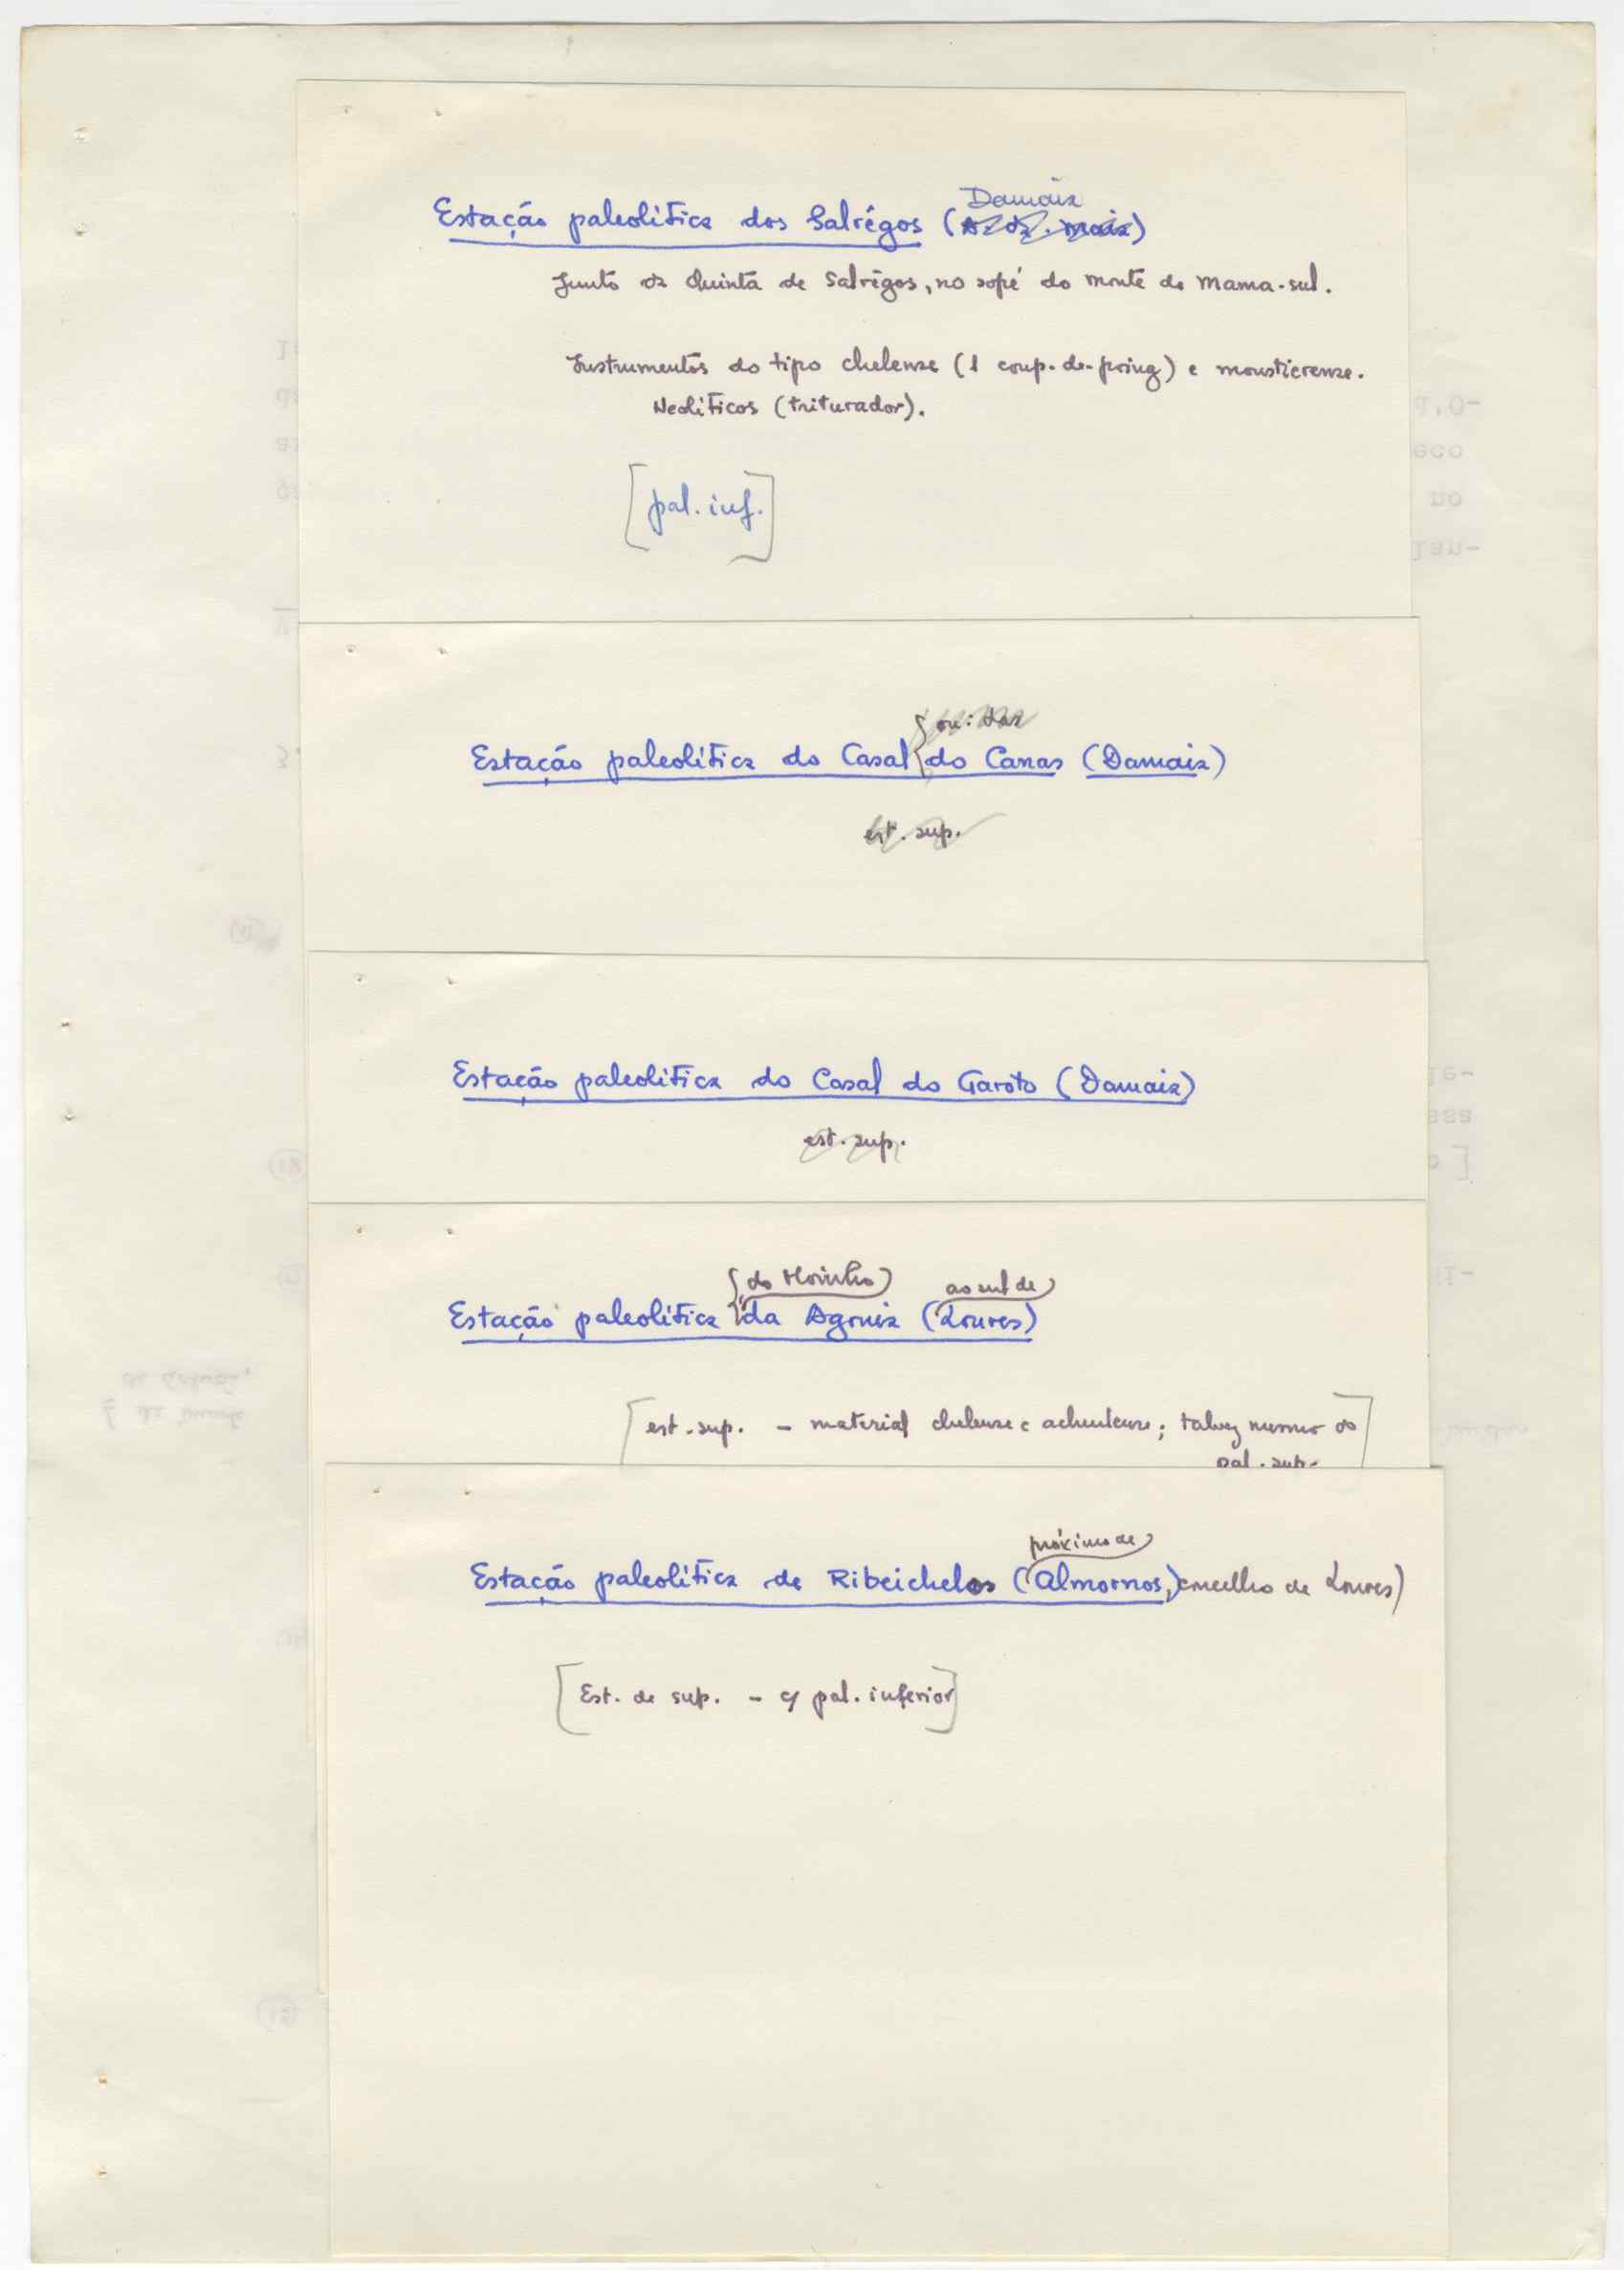 Damaia
Estação paleolítica dos Salrêgos ( )
Junto da Quinta de Salrêgos, no sopé do monte da Mama-sul.
Instrumentos do tipo chelense (1 coup-de-poing) e mousticrense.
Neolíticos (triturador).
[pal. inf.]
ou: das
Estação paleolítica do Casal do Canas (Damaia)
est. sup.
Estação paleolítica do Casal do Garoto (Damaia)
est. sup.
do Moinho) ao sul de
Estação paleolítica da Agonia (Loures)
[est. sup. - material chelense e acheulense; talvez mesmo do]
pal. sup.
próximo de
Estação paleolítica de Ribeichelos (Almornos, concelho de Loures)
[Est. de sup. - c/ pal. inferior]